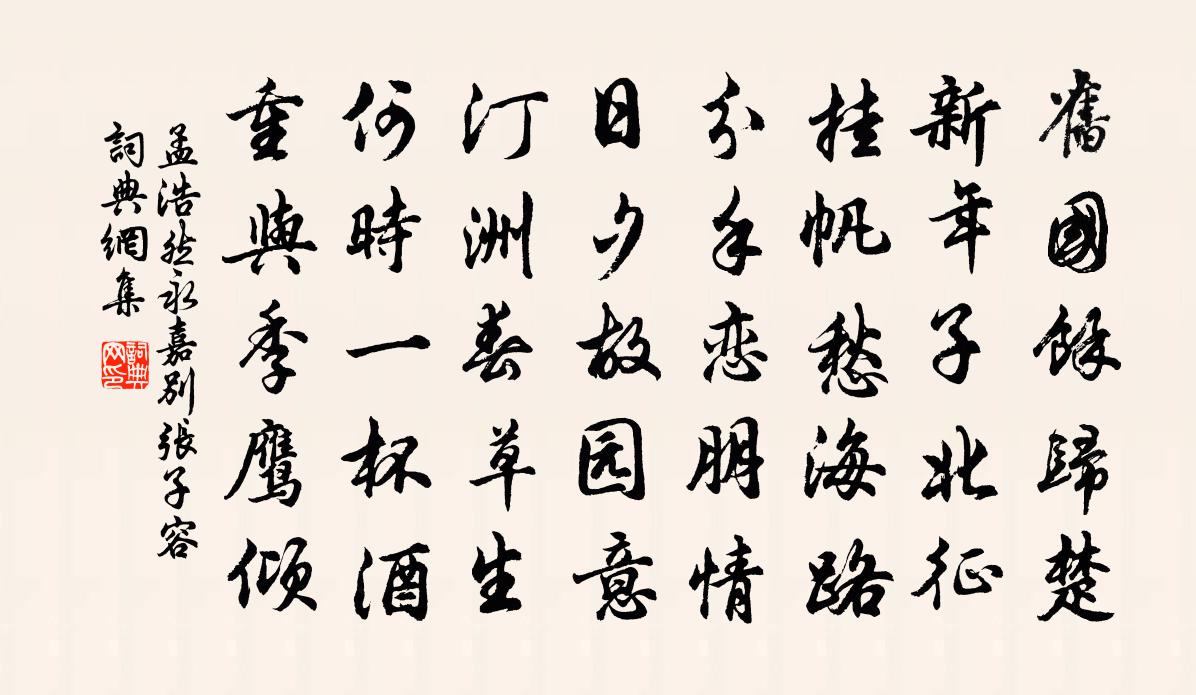 舊國餘歸楚
新年子北征
挂帆愁海路
分手恋朋情
日夕故园意
汀洲春草生
何時一杯酒
重與季鹰倾
孟浩然永嘉別張子容
詞典網集
詞典
网印